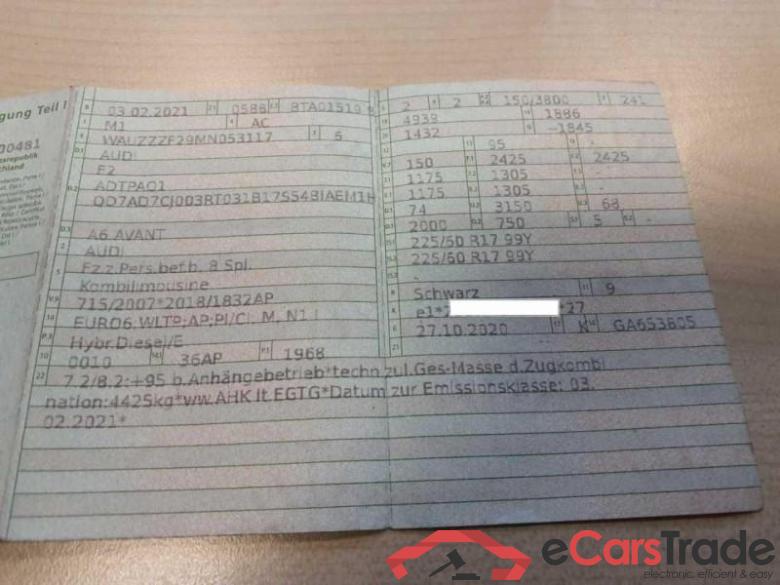 gung Teil I
00481
03.02.2021 0588 BTA01519
M1 AC
WAUZZZF29MN053117 6
AUDI
F2
ADTPAQ1
QD7AD7CJ003RT031B17S54BIAEM1H
A6 AVANT
AUDI
Fz.z.Pers.bef.b. 8 Spl.
Kombilimousine
715/2007*2018/1832AP
EURO6;WLTP;AP;PI/CI; M, N1 I
Hybr.Diesel/E
0010 36AP 1968
7.2/8.2:+95 b.Anhängebetrieb*techn.zul.Ges-Masse d.Zugkombi
nation:4425kg*ww.AHK lt.EGTG*Datum zur Emissionsklasse: 03.
02.2021*
2 2 150/3800 241
4939 1886
1432 -1845
95
150 2425 2425
1175 1305 -
1175 1305 -
74 3150 68
2000 750 5 -
225/50 R17 99Y
225/60 R17 99Y
-
Schwarz 9
e1* *27
27.10.2020 K GA653805
eCarsTrade
electronic, efficient & easy